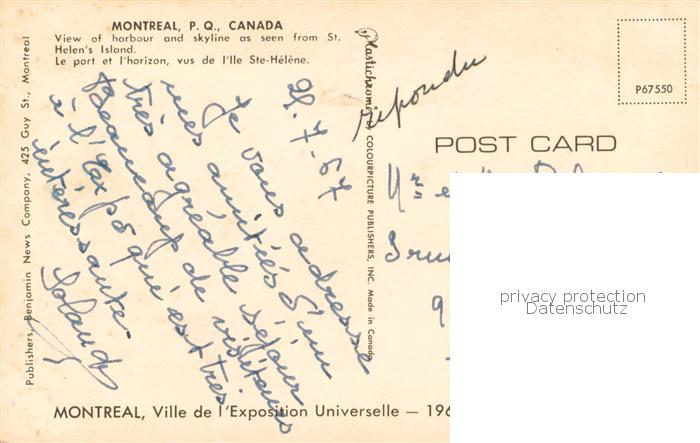 MONTREAL, P. Q., CANADA
View of harbour and skyline as seen from St.
Helen's Island.
Le port et l'horizon, vus de l'Ile Ste-Hélène.
28-7-67
Je vous adresse
mes amitiés d'un
très agréable séjour
Beaucoup de visiteurs
à l'Expo qui est très
intéressante.
répondu
Plastichrome by COLOURPICTURE PUBLISHERS, INC. Made in Canada
P67550
POST CARD
privacy protection
Datenschutz
Publishers, Benjamin News Company, 425 Guy St., Montreal
MONTREAL, Ville de l'Exposition Universelle — 196